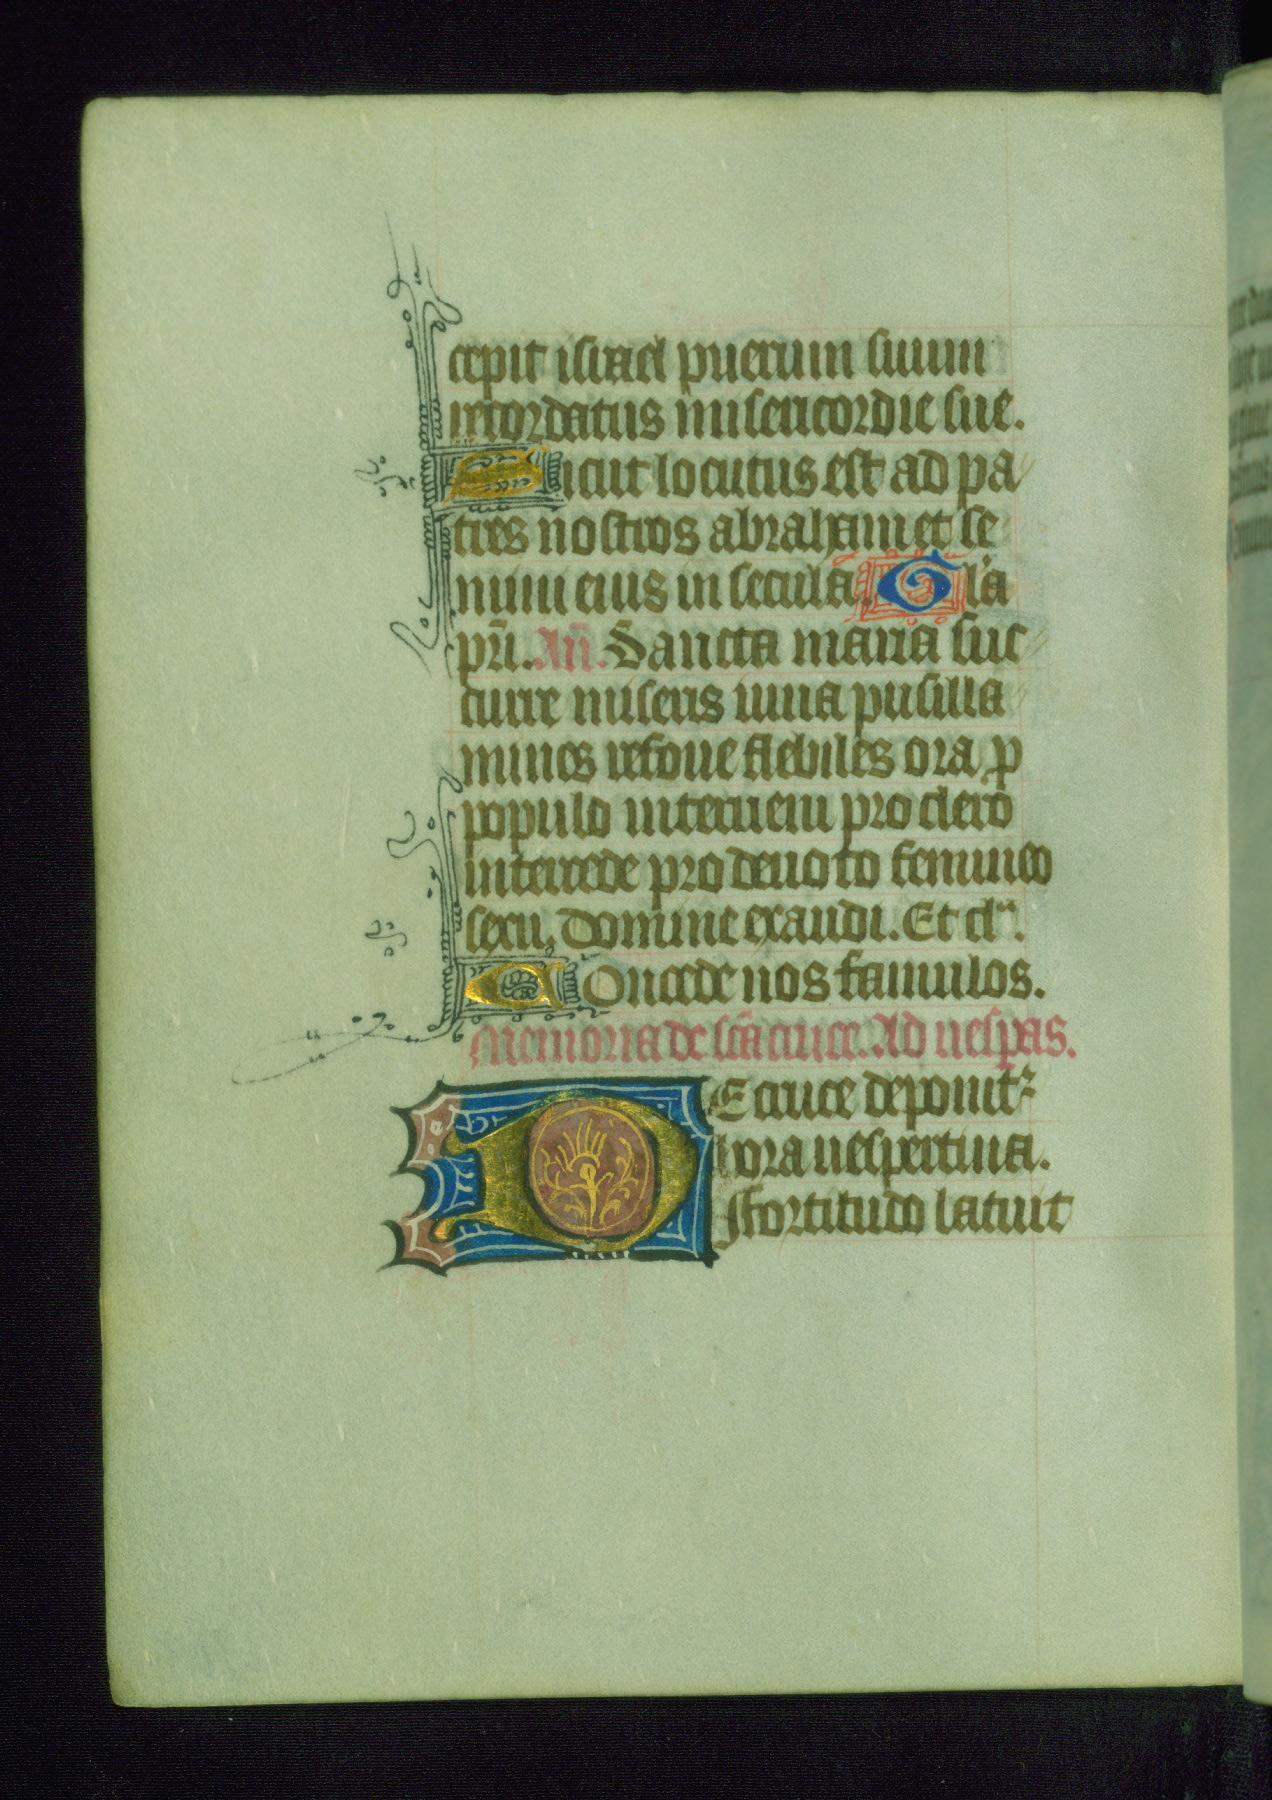 cepit israel puerum suum
recordatus misericordie sue.
Sicut locutus est ad pa
tres nostros abraham et se
mini eius in secula. Gl'a
pr̄i. An̄. Sancta maria suc
curre miseris iuua pusilla
nimes refoue flebiles ora ꝓ
populo interueni pro clero
intercede pro deuoto femineo
sexu. Domine exaudi. Et cl'.
Concede nos famulos.
Memoria de sc̄a cruce. Ad uespas.
DE cruce deponit᷑
hora uespertina.
fortitudo latuit